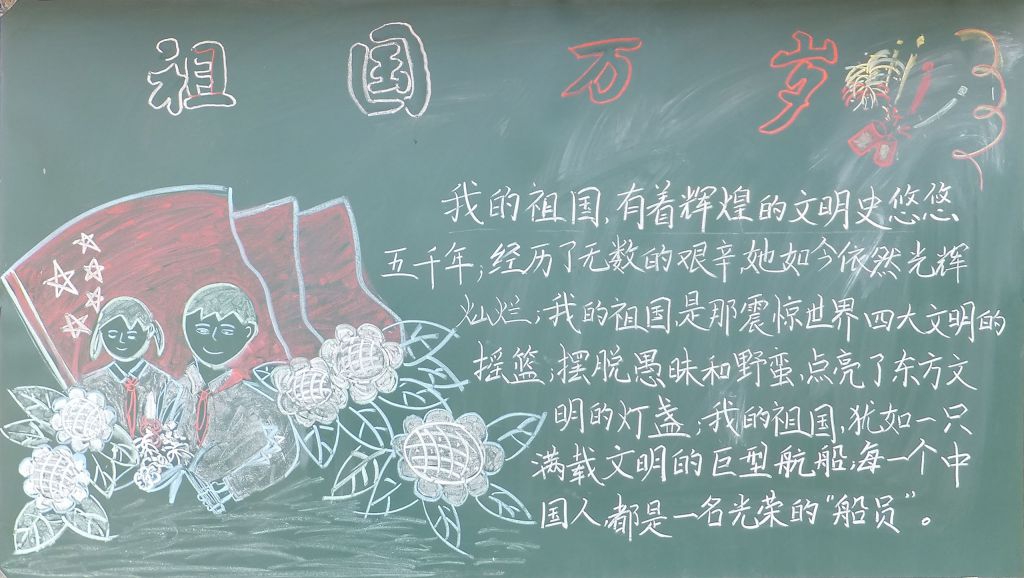 祖国万岁
我的祖国,有着辉煌的文明史悠悠
五千年;经历了无数的艰辛,她如今依然光辉
灿烂;我的祖国,是那震惊世界四大文明的
摇篮;摆脱愚昧和野蛮,点亮了东方文
明的灯盏;我的祖国,犹如一只
满载文明的巨型航船,每一个中
国人,都是一名光荣的“船员”。